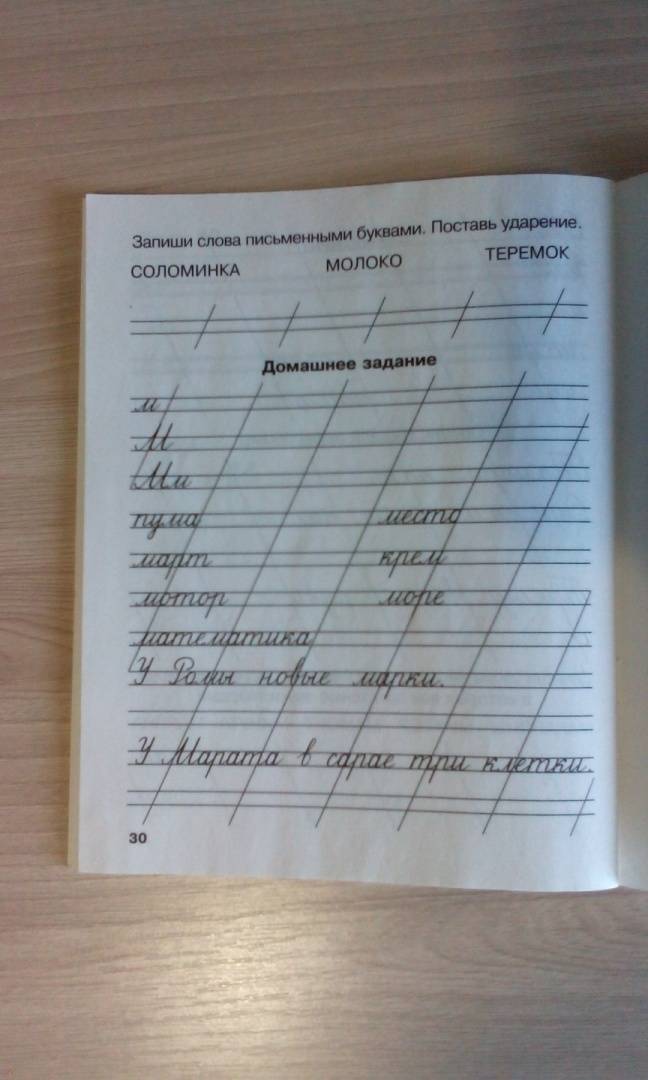 Запиши слова письменными буквами. Поставь ударение.
СОЛОМИНКА МОЛОКО ТЕРЕМОК
Домашнее задание
м
М
Мм
пума место
март крем
мотор море
математика
У Ромы новые марки.
У Марата в сарае три клетки.
30